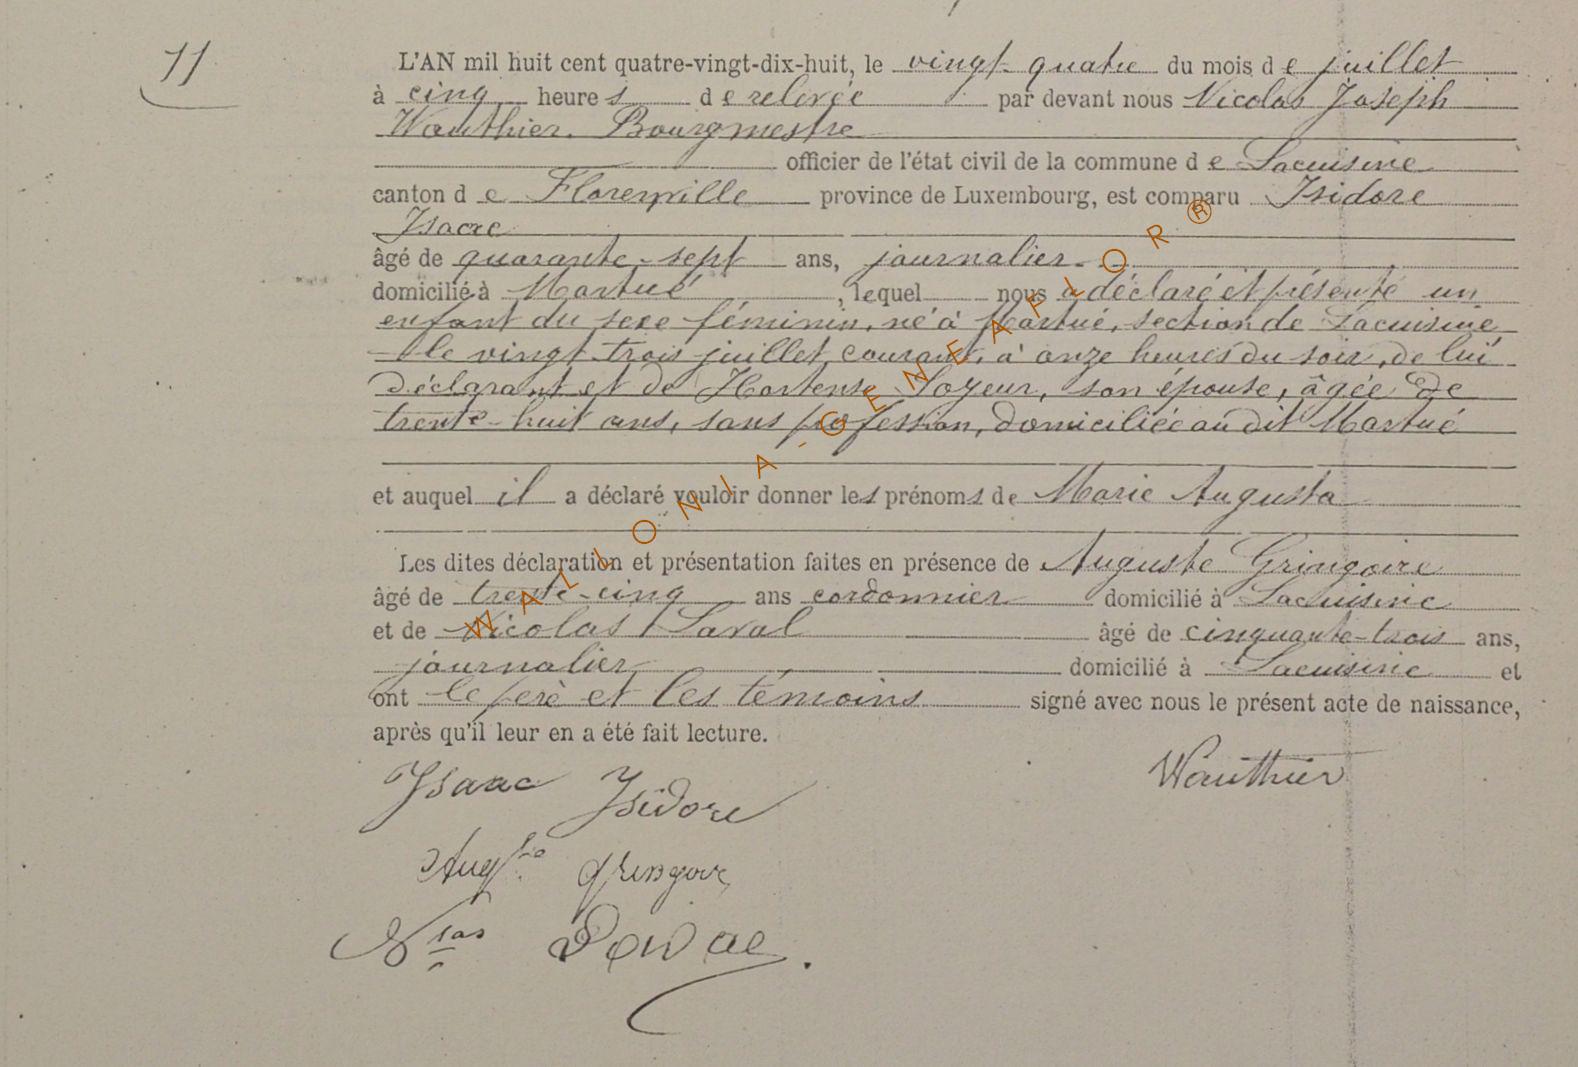 11
L'AN mil huit cent quatre-vingt-dix-huit, le vingt-quatre du mois de juillet
à cinq heures de relevée par devant nous Nicolas Joseph
Wauthier. Bourgmestre
officier de l'état civil de la commune de Lacuisine
canton de Florenville province de Luxembourg, est comparu Isidore
Isaac
âgé de quarante-sept ans, journalier
domicilié à Martué, lequel nous a déclaré et présenté un
enfant du sexe féminin, né à Martué, section de Lacuisine
le vingt-trois juillet courant, à onze heures du soir, de lui
déclarant et de Hortense Soyeur, son épouse, âgée de
trente-huit ans, sans profession, domiciliée au dit Martué
et auquel il a déclaré vouloir donner les prénoms de Marie Augusta
Les dites déclaration et présentation faites en présence de Auguste Gringoire
âgé de trente-cinq ans cordonnier domicilié à Lacuisine
et de Nicolas Laval âgé de cinquante-trois ans,
journalier domicilié à Lacuisine et
ont le père et les témoins signé avec nous le présent acte de naissance,
après qu'il leur en a été fait lecture.
Isaac Isidore Wauthier
Augte Gringoire
Nlas
WALLONIA-GENEAFLOR®